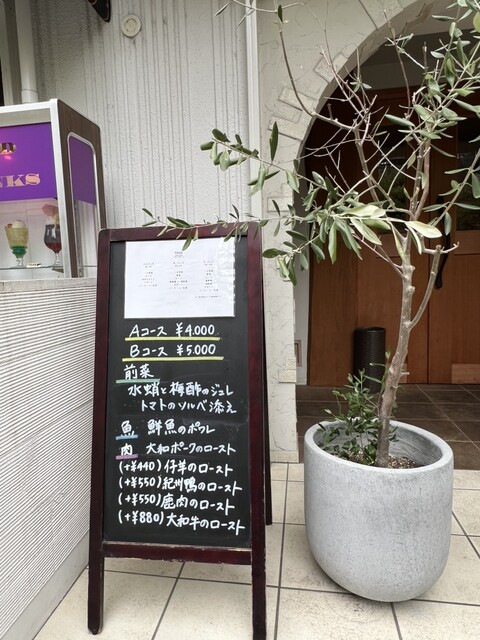 NKS
Aコース ¥4.000
Bコース ¥5.000
前菜
水蛸と梅酢のジュレ
トマトのソルベ添え
魚 鮮魚のポワレ
肉 大和ポークのロースト
(+¥440)仔羊のロースト
(+¥550)紀州鴨のロースト
(+¥550)鹿肉のロースト
(+¥880)大和牛のロースト